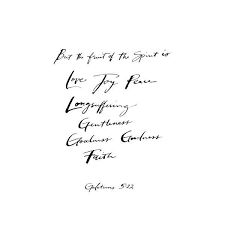 But the fruit of the Spirit is
Love Joy Peace
Longsuffering
Gentleness
Goodness Goodness
Faith
Galatians 5:22